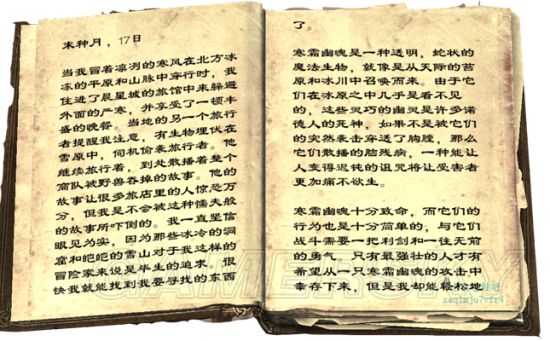 末种月，17日
当我冒着凛冽的寒风在北方冰
冻的平原和山脉中穿行时，我
住进了晨星城的旅馆中来躲避
外面的严寒，并享受了一顿丰
盛的晚餐。当地的另一个旅行
者提醒我注意，有生物埋伏在
雪原中，伺机偷袭旅行者。他
继续旅行着，到处散播着整个
商队被野兽吞掉的故事。他的
故事让很多旅店里的人惊恐万
分，但我是不会被这种懦夫般
的故事所吓倒的。我一直坚信
眼见为实，因为那些冰冷的洞
窟和皑皑的雪山对于我这样的
冒险家来说是毕生的追求，很
快我就能找到我要寻找的东西
了。
寒霜幽魂是一种透明，蛇状的
魔法生物，就像是从天际的苔
原和冰川中召唤而来。由于它
们在冰原之中几乎是看不见
的，这些灵巧的幽灵是许多诺
德人的死神，如果不是被它们
的突然袭击穿透了胸膛，那么
它们散播的脑残病，一种能让
人变得迟钝的诅咒将让受害者
更加痛不欲生。
寒霜幽魂十分致命，而它们的
行为也是十分简单的，与它们
战斗需要一把利剑和一往无前
的勇气，只有最强壮的人才有
希望从一只寒霜幽魂的攻击中
幸存下来，但是我却能轻松地
GAMERSKY
zaqimju7vfr4